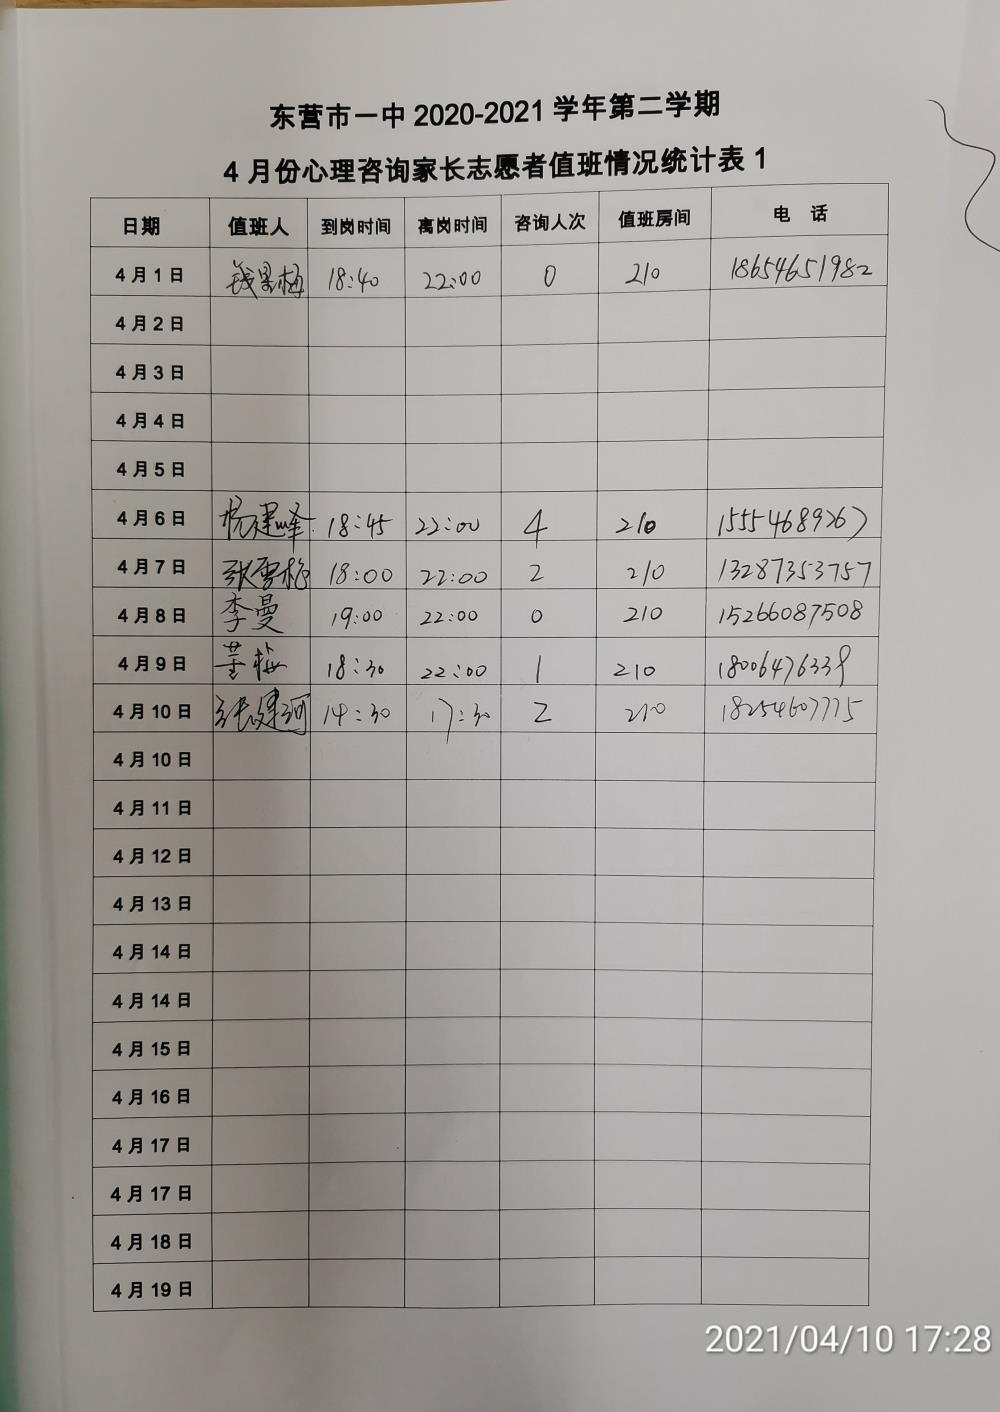 东营市一中 2020-2021 学年第二学期
4 月份心理咨询家长志愿者值班情况统计表 1
日期 值班人 到岗时间 离岗时间 咨询人次 值班房间 电 话
4 月 1 日 钱墨梅 18:40 22:00 0 210 18654651982
4 月 2 日
4 月 3 日
4 月 4 日
4 月 5 日
4 月 6 日 杨建峰 18:45 22:00 4 210 15554689267
4 月 7 日 张雪梅 18:00 22:00 2 210 13287353757
4 月 8 日 李曼 19:00 22:00 0 210 15266087508
4 月 9 日 董梅 18:30 22:00 1 210 18006476339
4 月 10 日 张建河 14:30 17:30 2 210 18254607775
4 月 10 日
4 月 11 日
4 月 12 日
4 月 13 日
4 月 14 日
4 月 14 日
4 月 15 日
4 月 16 日
4 月 17 日
4 月 17 日
4 月 18 日
4 月 19 日
2021/04/10 17:28